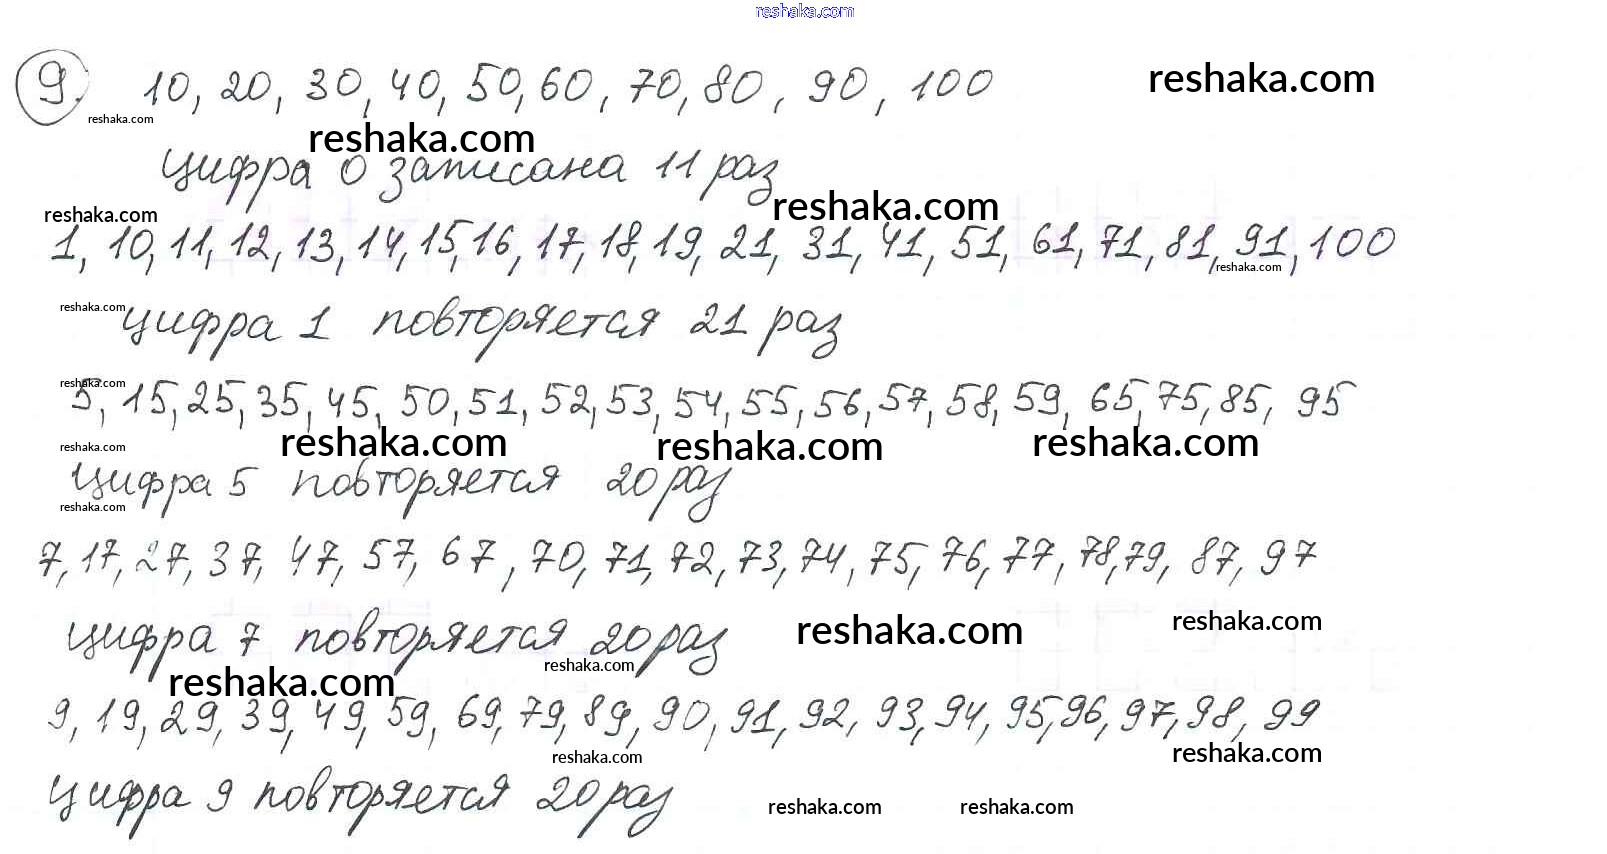 reshaka.com
9. 10, 20, 30, 40, 50, 60, 70, 80, 90, 100 reshaka.com
reshaka.com reshaka.com
цифра 0 записана 11 раз
reshaka.com reshaka.com
1, 10, 11, 12, 13, 14, 15, 16, 17, 18, 19, 21, 31, 41, 51, 61, 71, 81, 91, 100
reshaka.com
reshaka.com
цифра 1 повторяется 21 раз
reshaka.com
5, 15, 25, 35, 45, 50, 51, 52, 53, 54, 55, 56, 57, 58, 59, 65, 75, 85, 95
reshaka.com reshaka.com reshaka.com reshaka.com
Цифра 5 повторяется 20 раз
reshaka.com
7, 17, 27, 37, 47, 57, 67, 70, 71, 72, 73, 74, 75, 76, 77, 78, 79, 87, 97
цифра 7 повторяется 20 раз reshaka.com reshaka.com
reshaka.com
reshaka.com
9, 19, 29, 39, 49, 59, 69, 79, 89, 90, 91, 92, 93, 94, 95, 96, 97, 98, 99
reshaka.com reshaka.com
Цифра 9 повторяется 20 раз reshaka.com reshaka.com